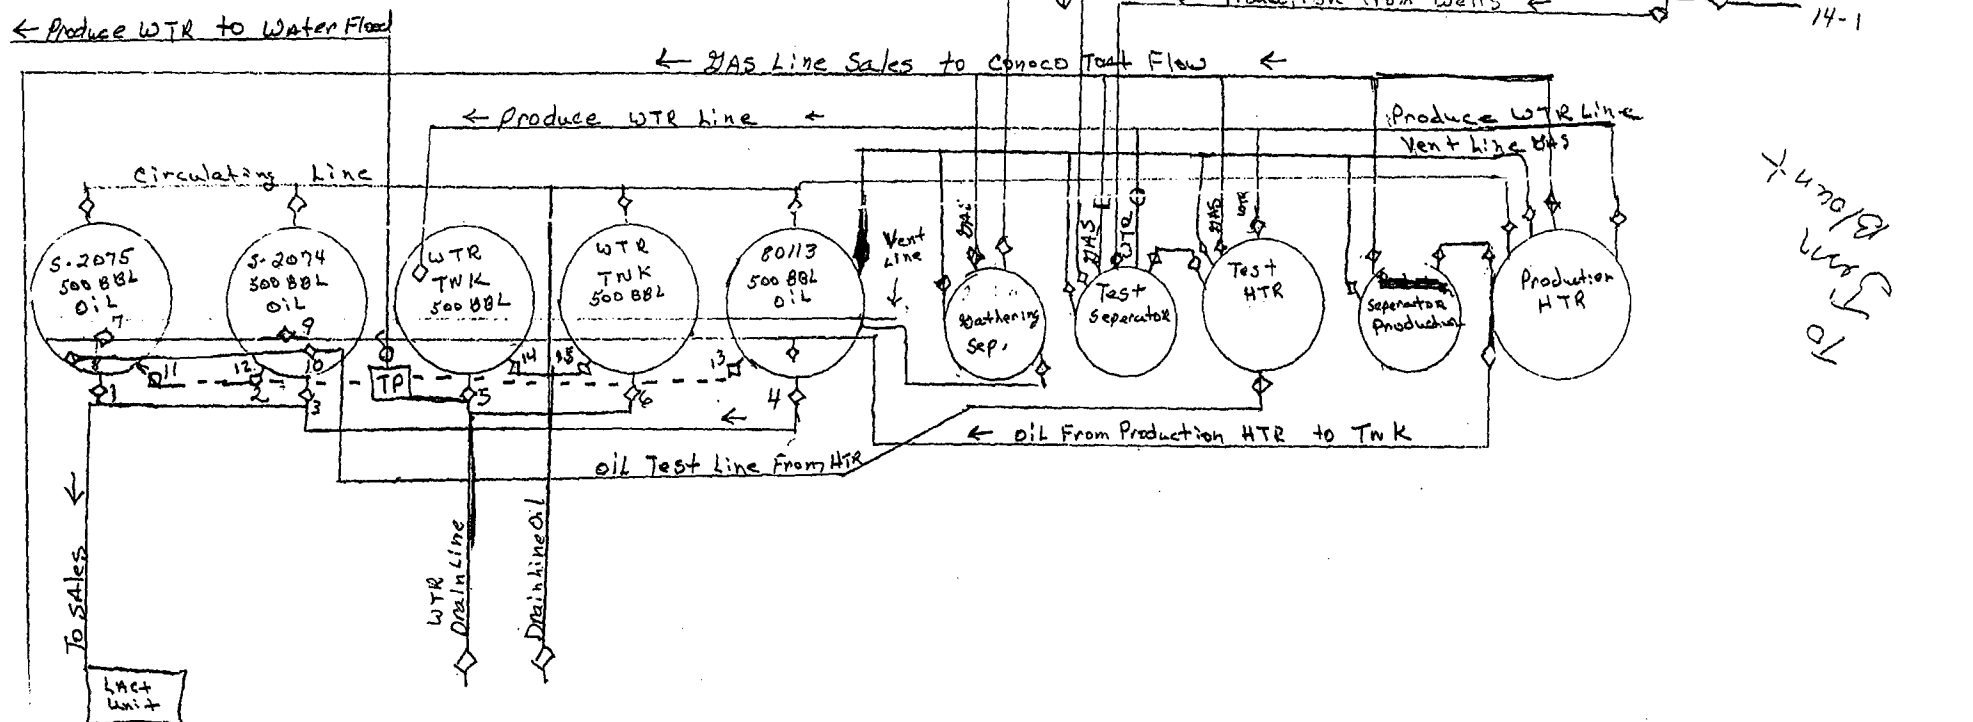 ← Produce WTR to Water Flood
Production From Wells ←
14-1
← GAS Line Sales to Conoco Tast Flow ←
← Produce WTR Line ←
Produce WTR Line
Vent Line GAS
Circulating Line
S-2075
500 BBL
OIL
S-2074
500 BBL
OIL
WTR
TNK
500 BBL
WTR
TNK
500 BBL
80113
500 BBL
OIL
Vent
Line
GAS
Gathering
Sep.
GAS
WTR
Test
Seperator
GAS
WTR
Test
HTR
Seperator
Production
Production
HTR
To
Jim
Blount
7
8
9
10
11
12
13
14
15
1
2
3
TP
5
6
4
←
← OIL From Production HTR to TNK
OIL Test Line From HTR
←
To SAles
WTR
Drain Line
Drain Line Oil
LAct
Unit